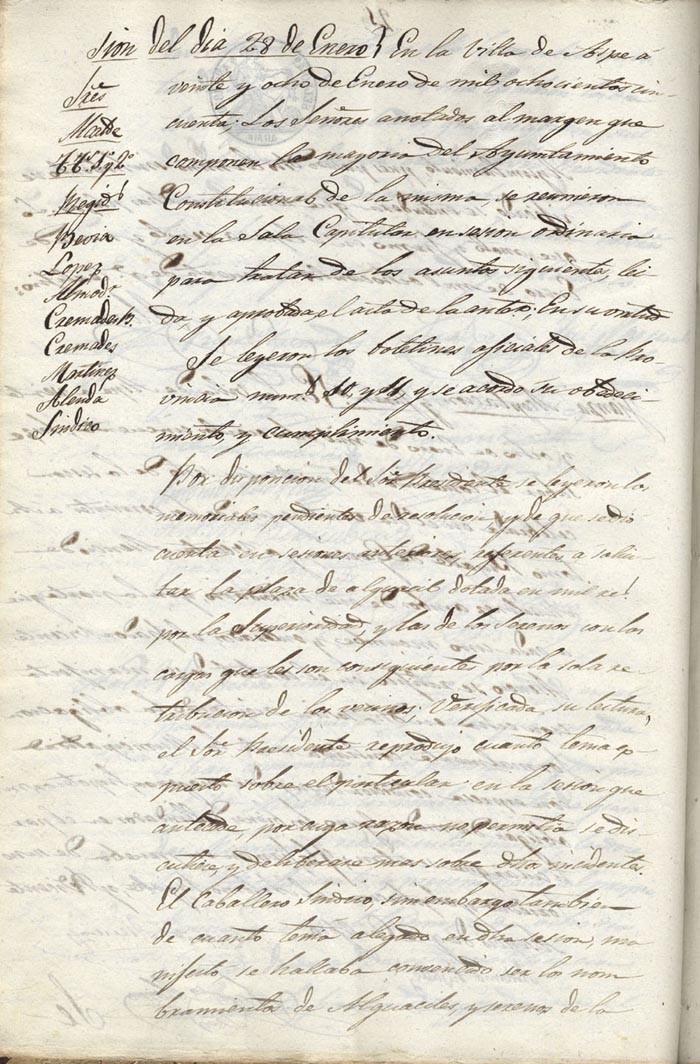 sion del dia 28 de Enero} En la Villa de Aspe á
veinte y ocho de Enero de mil ochocientos cin-
cuenta; Los Señores anotados al margen que
componen la mayoria del Ayuntamiento
Constitucional de la misma se reunieron
en la Sala Capitular en sesion ordinaria
para tratar de los asuntos siguientes, lei-
da, y aprobada el acta de la antor, En su continuad
Se leyeron los boletines oficiales de la Pro-
vincia num.s 10, y 11, y se acordó su obedeci-
miento, y cumplimiento.
Por disposicion del Sor. Presidente se leyeron los
memoriales pendientes de resolucion, y de que se dio
cuenta en sesiones anteriores, referentes a solici-
tar la plaza de alguacil dotada en mil rs.
por la Superioridad, y las de los Serenos con los
cargos que les son consiguientes por la sola re-
tribucion de los vecinos, Verificada su lectura,
el Sor. Presidente reprodujo cuanto tenia ex-
puesto sobre el particular en la sesion que
antecede, por cuya razon no permitia se dis-
cutiese, y deliberase mas sobre dho incidente.
El Caballero Sindico, sin embargo tambien
de cuanto tenia alegado en dha sesion, ma-
nifestó se hallaba convencido ser los nom-
bramientos de Alguaciles, y serenos de la
Sres
Alcalde
TT. 1º y 2º
Regid.s
Bevia
Lopez
Almodr
Cremades B.
Cremades
Martinez
Alenda
Sindico